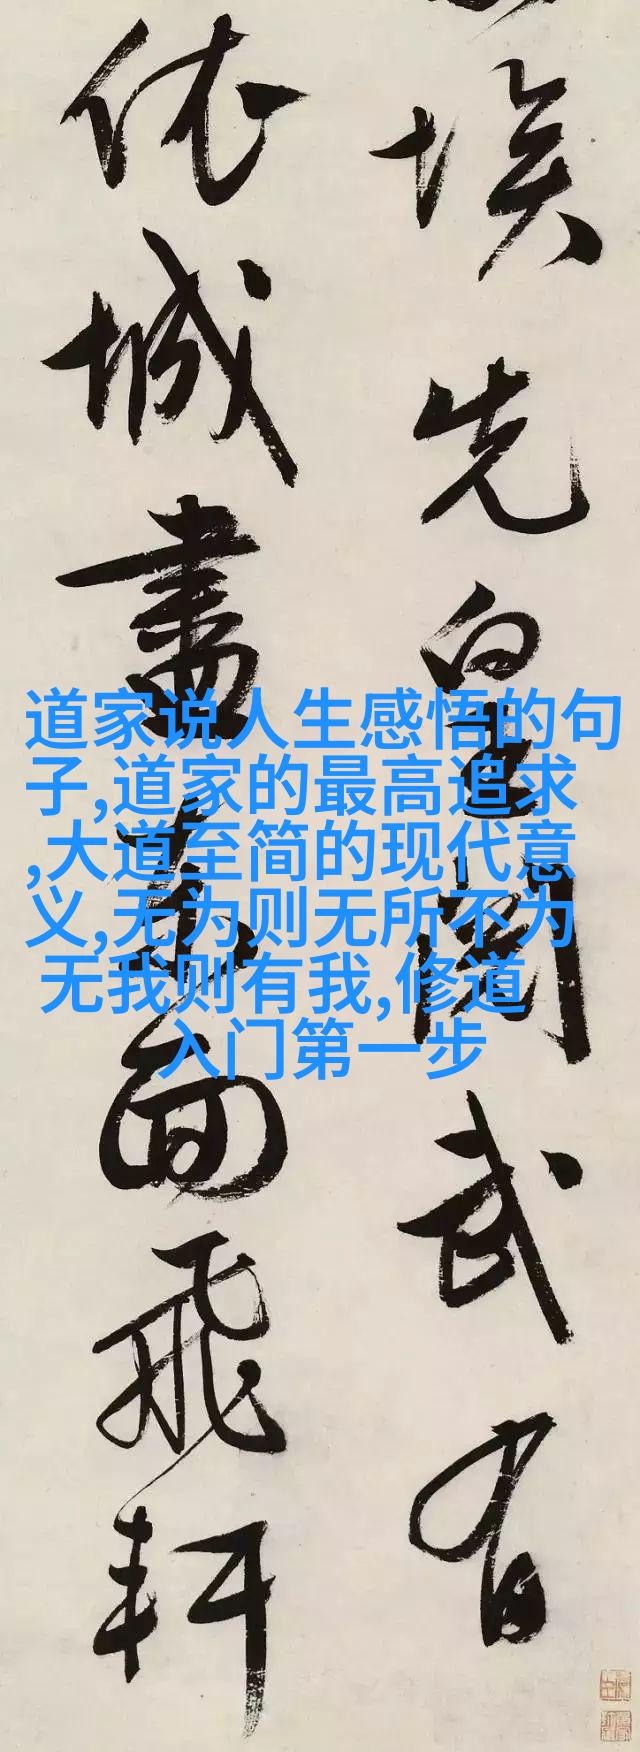 埃先皇閱武有
依城面飛軒
道家说人生感悟的句
子,道家的最高追求
,大道至简的现代意
义,无为则无所不为
无我则有我,修道
入门第一步